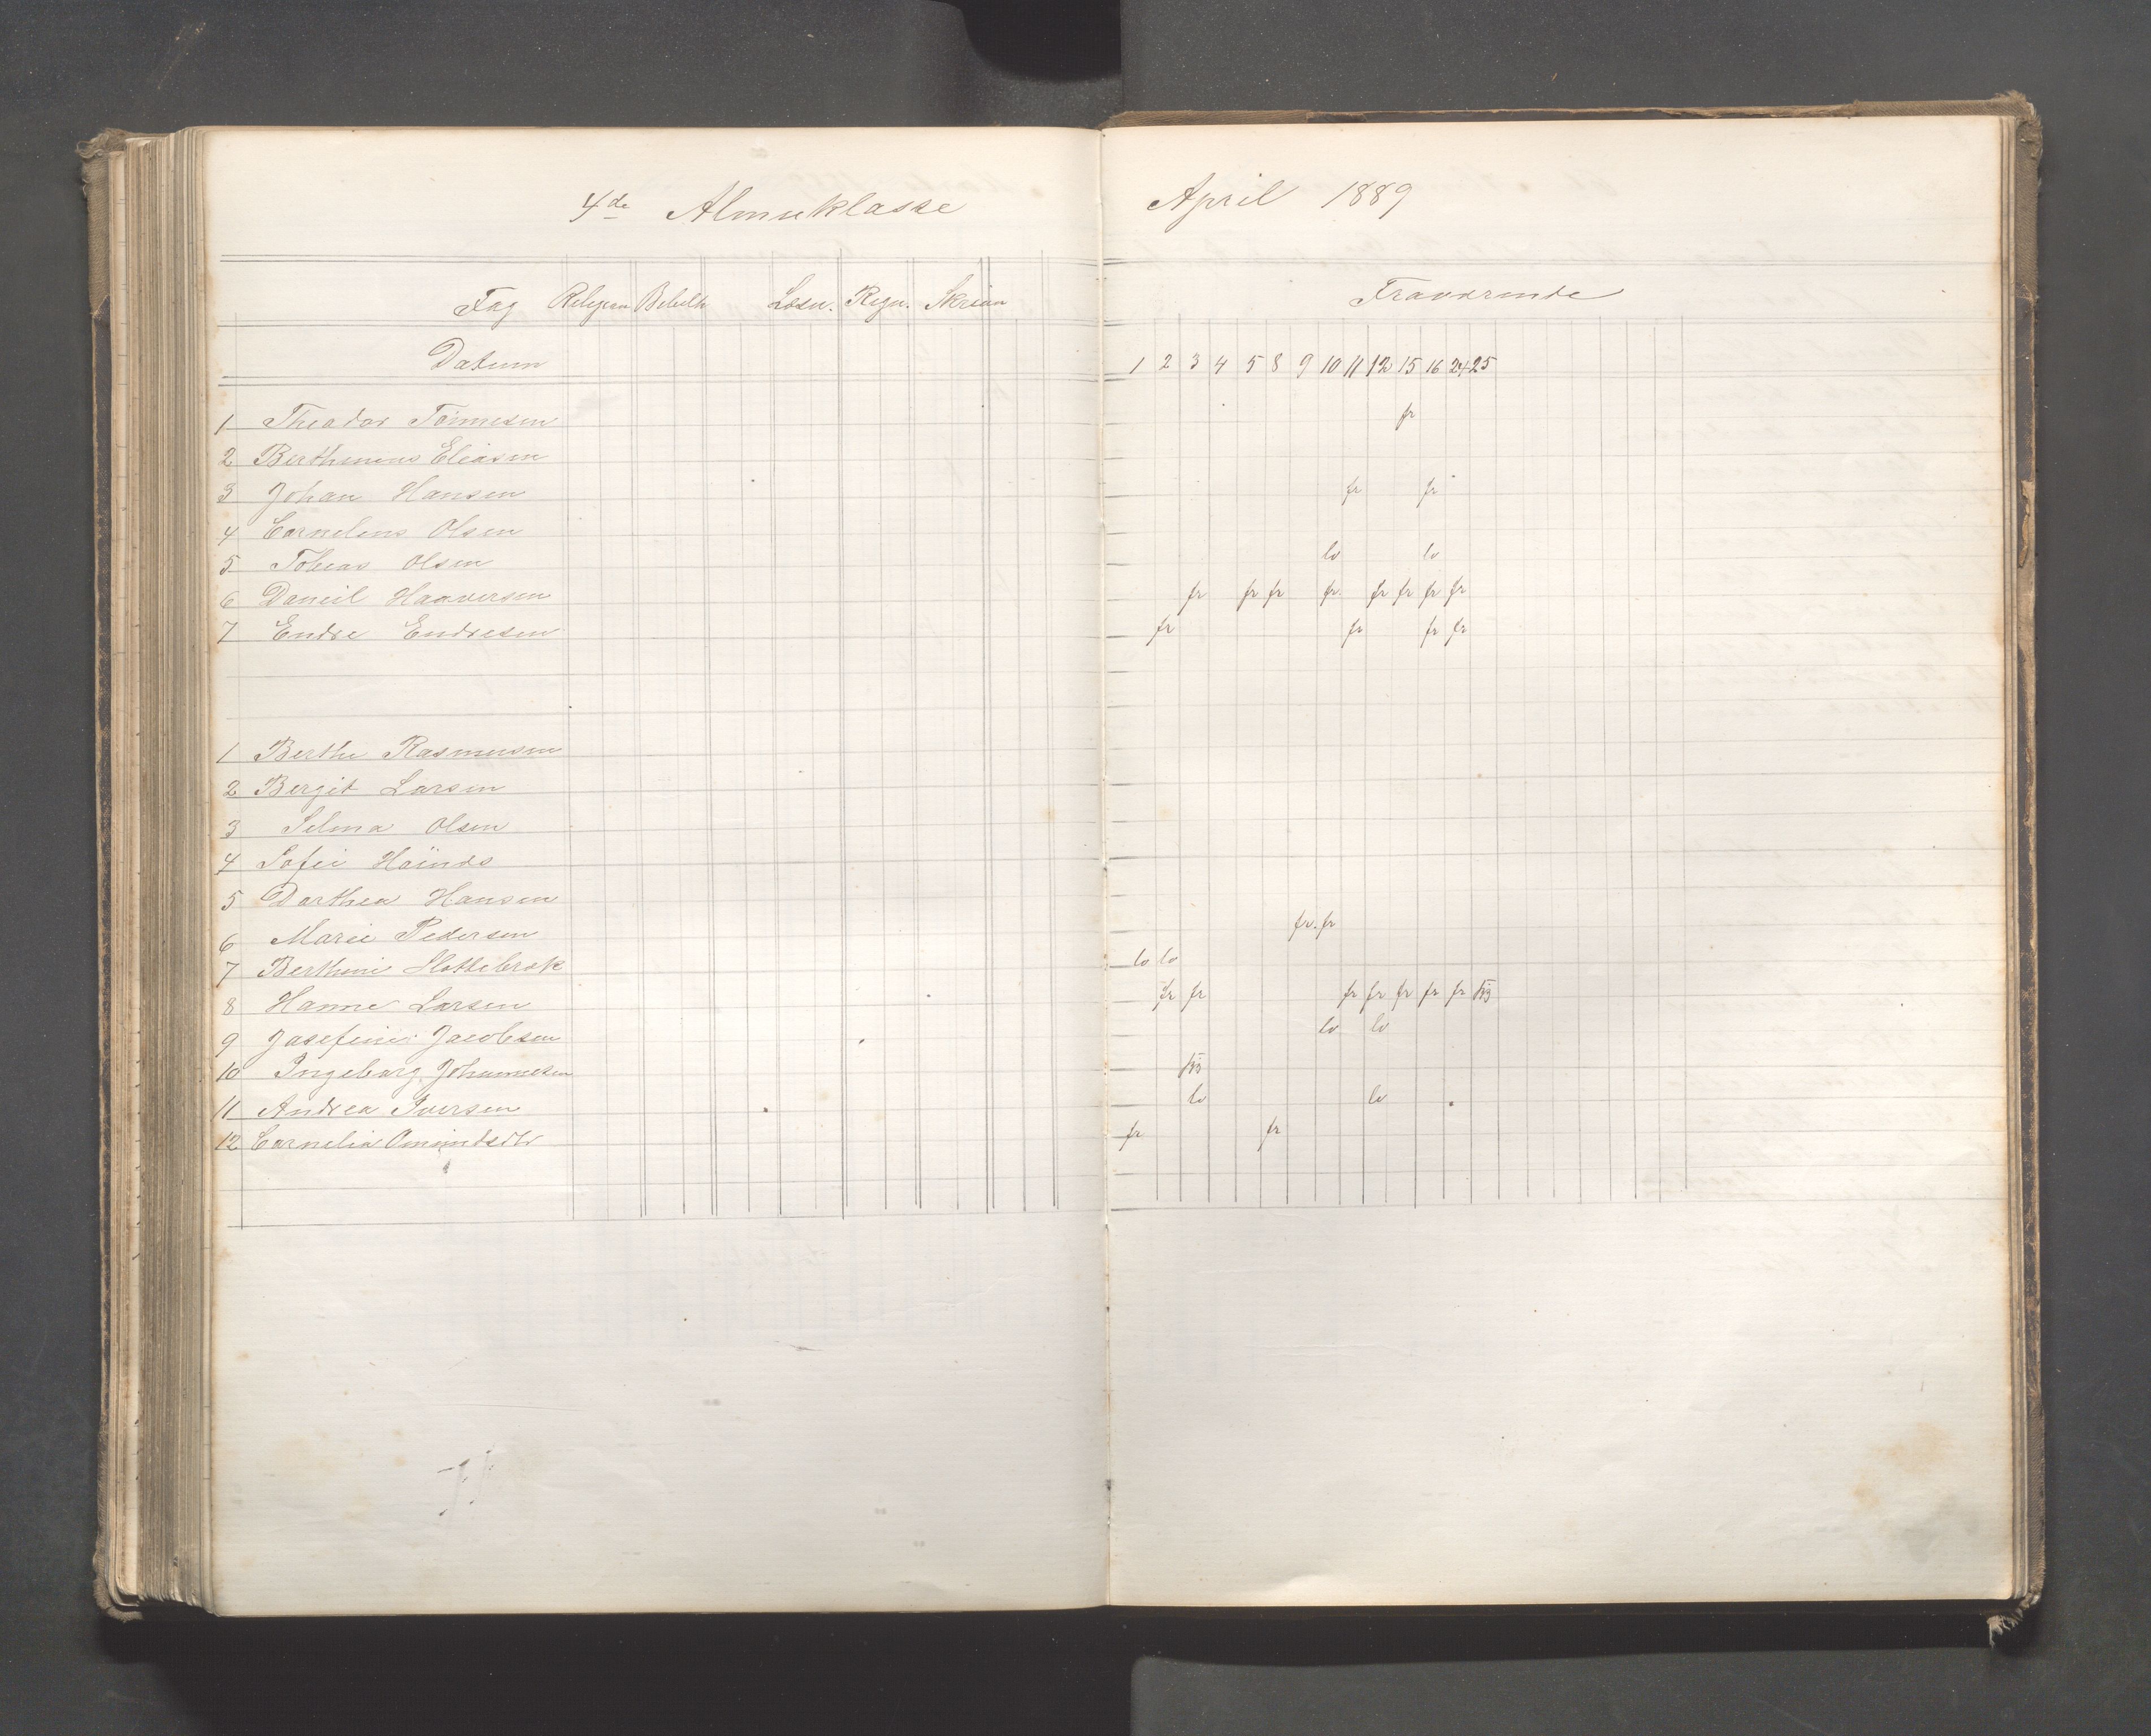 4de Almueklasse
April 1889
Fag Religion Bibelh Læsn. Regn. Skrivn
Fraværende
Datum
1 2 3 4 5 8 9 10 11 12 15 16 24 25
1 Theodor Tønnesen fr
2 Berthinius Eliasen
3 Johan Hansen fr fr
4 Cornelius Olsen
5 Tobias Olsen lo lo
6 Daneil Haaversen fr fr fr fr. fr fr fr fr
7 Endre Endresen fr fr fr fr
1 Berthe Rasmussen
2 Bergit Larsen
3 Selma Olsen
4 Sofie
5 Dorthea Hansen
6 Marie Pedersen fr. fr
7 Berthine Slottebrok lo lo
8 Hanne Larsen fr fr fr fr fr fr fr
9 Josefine Jacobsen lo lo
10 Ingeborg Johannesen
11 Andrea Iversen lo lo
12 Cornelia fr fr